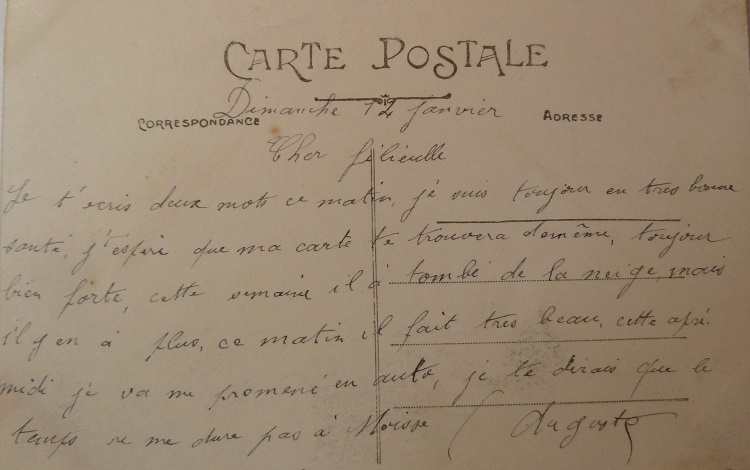 CARTE POSTALE
Dimanche 12 Janvier
CORRESPONDANCE
ADRESSE
Cher
Je t'ecris deux mots ce matin, je suis toujour en tres bonne
santé, j'espére que ma carte te trouvera demême, toujour
bien forte, cette semaine il à tombé de la neige, mais
il y en à plus, ce matin il fait tres beau, cette apré.
midi je va me promené en auto, je te dirais que le
temps ne me dure pas à Moisse
Auguste